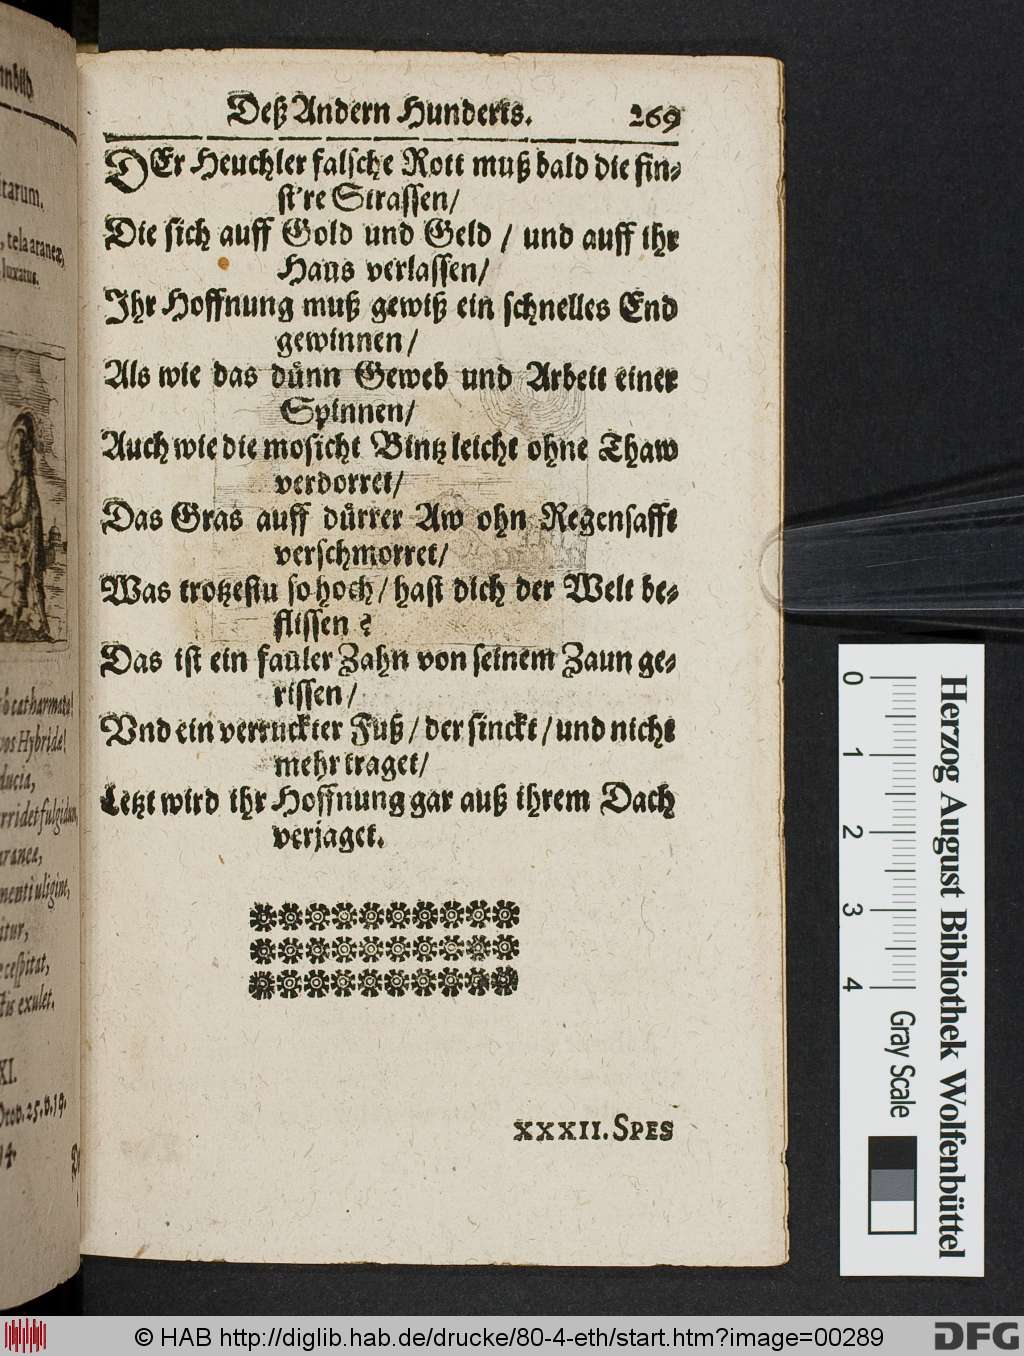 nnbild
itarum.
, tela araneæ,
luxatus.
ò catharmata!
vos Hybridæ!
ducia,
rridet fulgidum,
aranea,
menti uligine,
itur,
e cespitat,
tis exulet.
XI.
Prov. 25. v. 19.
14.
Deß Andern Hunderts. 269
DEr Heuchler falsche Rott muß bald die fin-
st're Strassen/
Die sich auff Gold und Geld / und auff ihr
Haus verlassen/
Ihr Hoffnung muß gewiß ein schnelles End
gewinnen/
Als wie das dünn Geweb und Arbeit einer
Spinnen/
Auch wie die mosicht Bintz leicht ohne Thaw
verdorret/
Das Gras auff dürrer Aw ohn Regensafft
verschmorret/
Was trotzestu so hoch / hast dich der Welt be-
flissen ?
Das ist ein fauler Zahn von seinem Zaun ge-
rissen /
Vnd ein verruckter Fuß / der sinckt / und nicht
mehr traget/
Letzt wird ihr Hoffnung gar auß ihrem Dach
verjaget.
XXXII. SPES
0 1 2 3 4
Gray Scale
Herzog August Bibliothek Wolfenbüttel
© HAB http://diglib.hab.de/drucke/80-4-eth/start.htm?image=00289
DFG